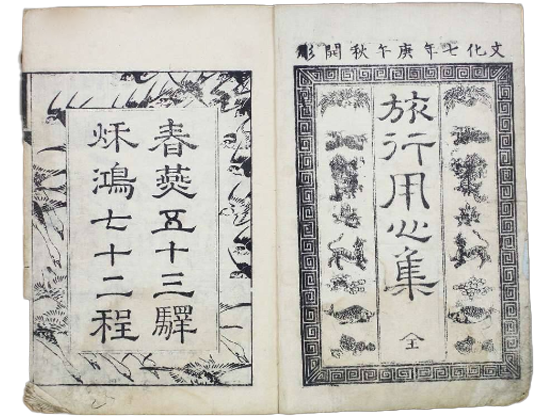 文化七年庚午秋開彫
旅行用心集
全
春燕五十三驛
秌鴻七十二程